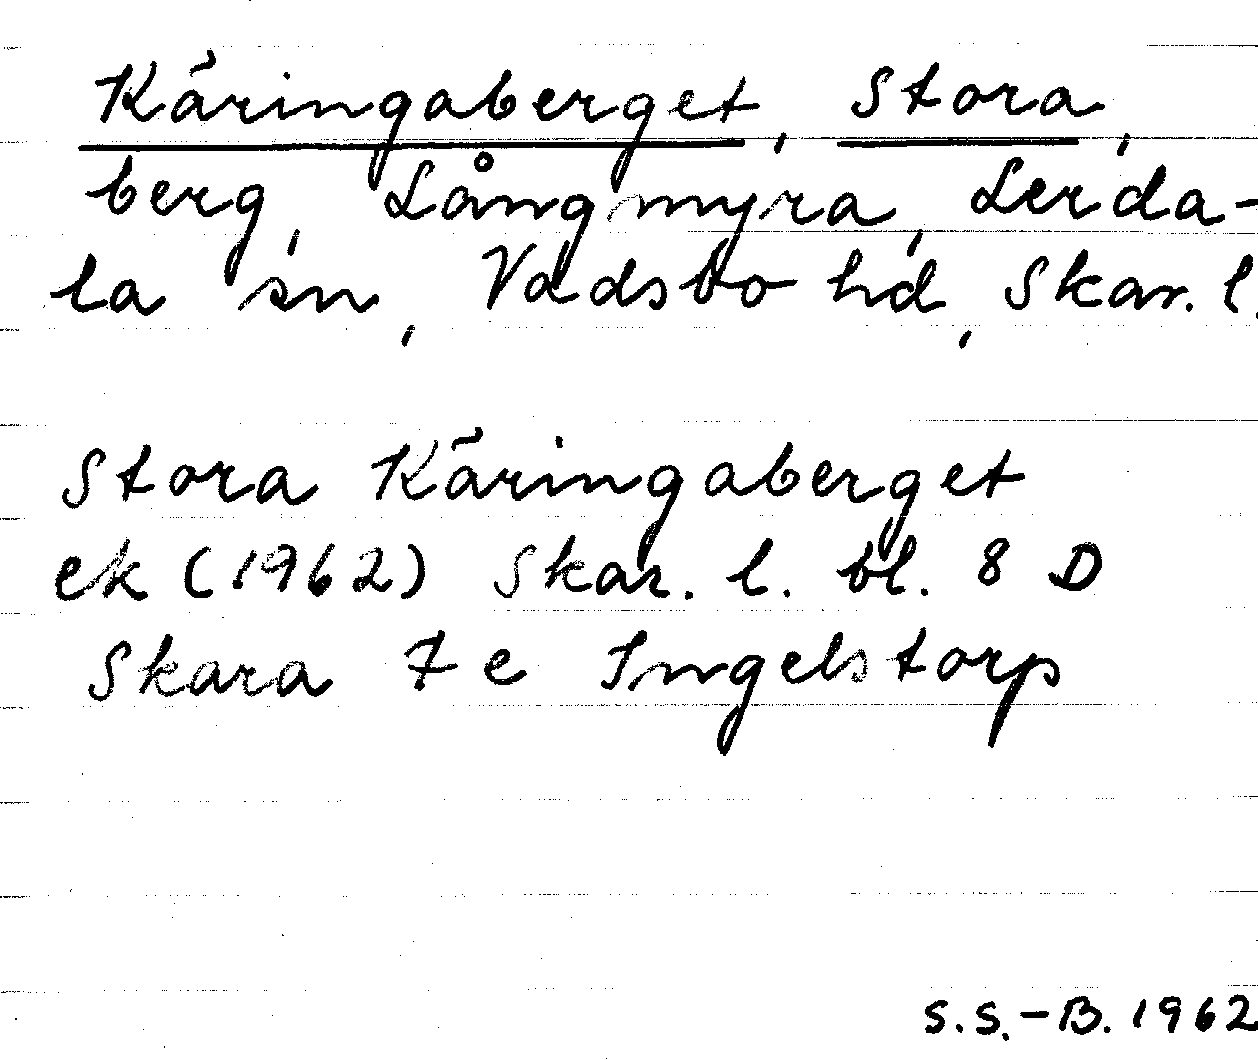 Käringaberget, Stora,
berg, Långmyra, Lerda-
la sn, Vadsbo hd, Skar. l.
Stora Käringaberget
ek (1962) Skar. l. bl. 8 D
Skara 7 e Ingelstorp
S.S.-B. 1962